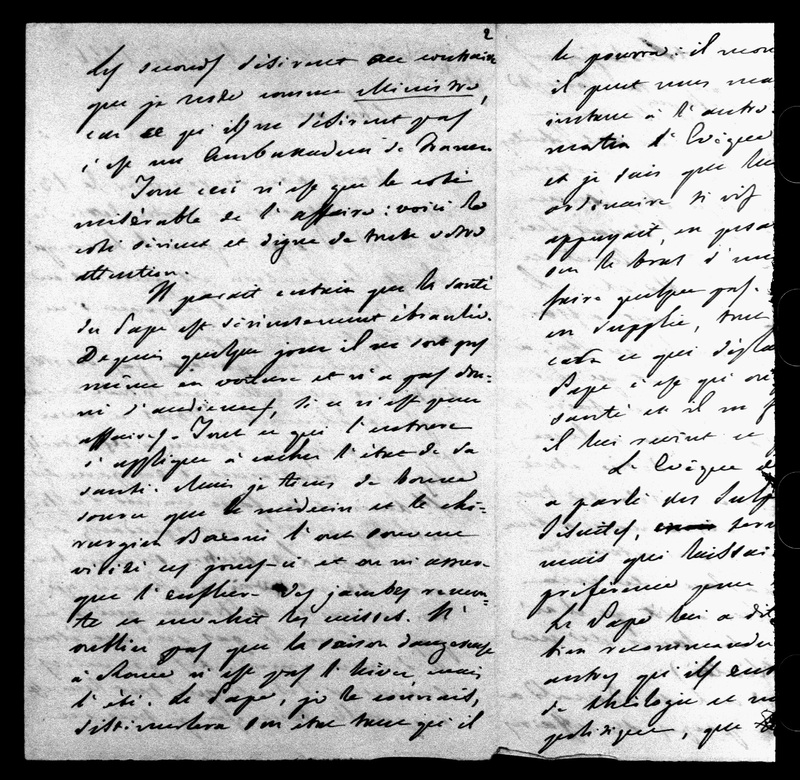 2
les seconds désirent au contraire
que je reste comme Ministre,
car ce qu'ils ne désirent pas
c'est un Ambassadeur de France.
Tout ceci n'est que le coté
misérable de l'affaire : voici le
coté sérieux et digne de toute votre
attention.
Il parait certain que la santé
du Pape est sérieusement ébranlée.
Depuis quelques jours il ne sort pas
même en voiture et n'a pas don-
né d'audiences, si ce n'est pour
affaires. Tout ce qui l'entoure
s'applique à cacher l'état de sa
santé. Mais je tiens de bonne
source que le médecin et le chi-
rurgien Baroni l'ont souvent
visité ces jours-ci et on m'assure
que l'enflure des jambes remon-
te et envahit les cuisses. N'
oubliez pas que la saison dangereuse
à Rome n'est pas l'hiver, mais
l'été. Le Pape, je le connais,
dissimulera son état tant qu'il
le pourra : il
il peut
instance à l'autre.
l'Evêque
et je sais que
ordinaire si vif
appuyait, en
sur le bras d'un
faire quelques pas.
en supplie, tout
cela ce qui
Pape c'est qui
santé et il
il lui revint et
L'Evêque
a parlé des
Jésuites,
mais qui
préférence pour
Le Pape lui a dit
bien
autres qu'ils
de théologie et
politique, que